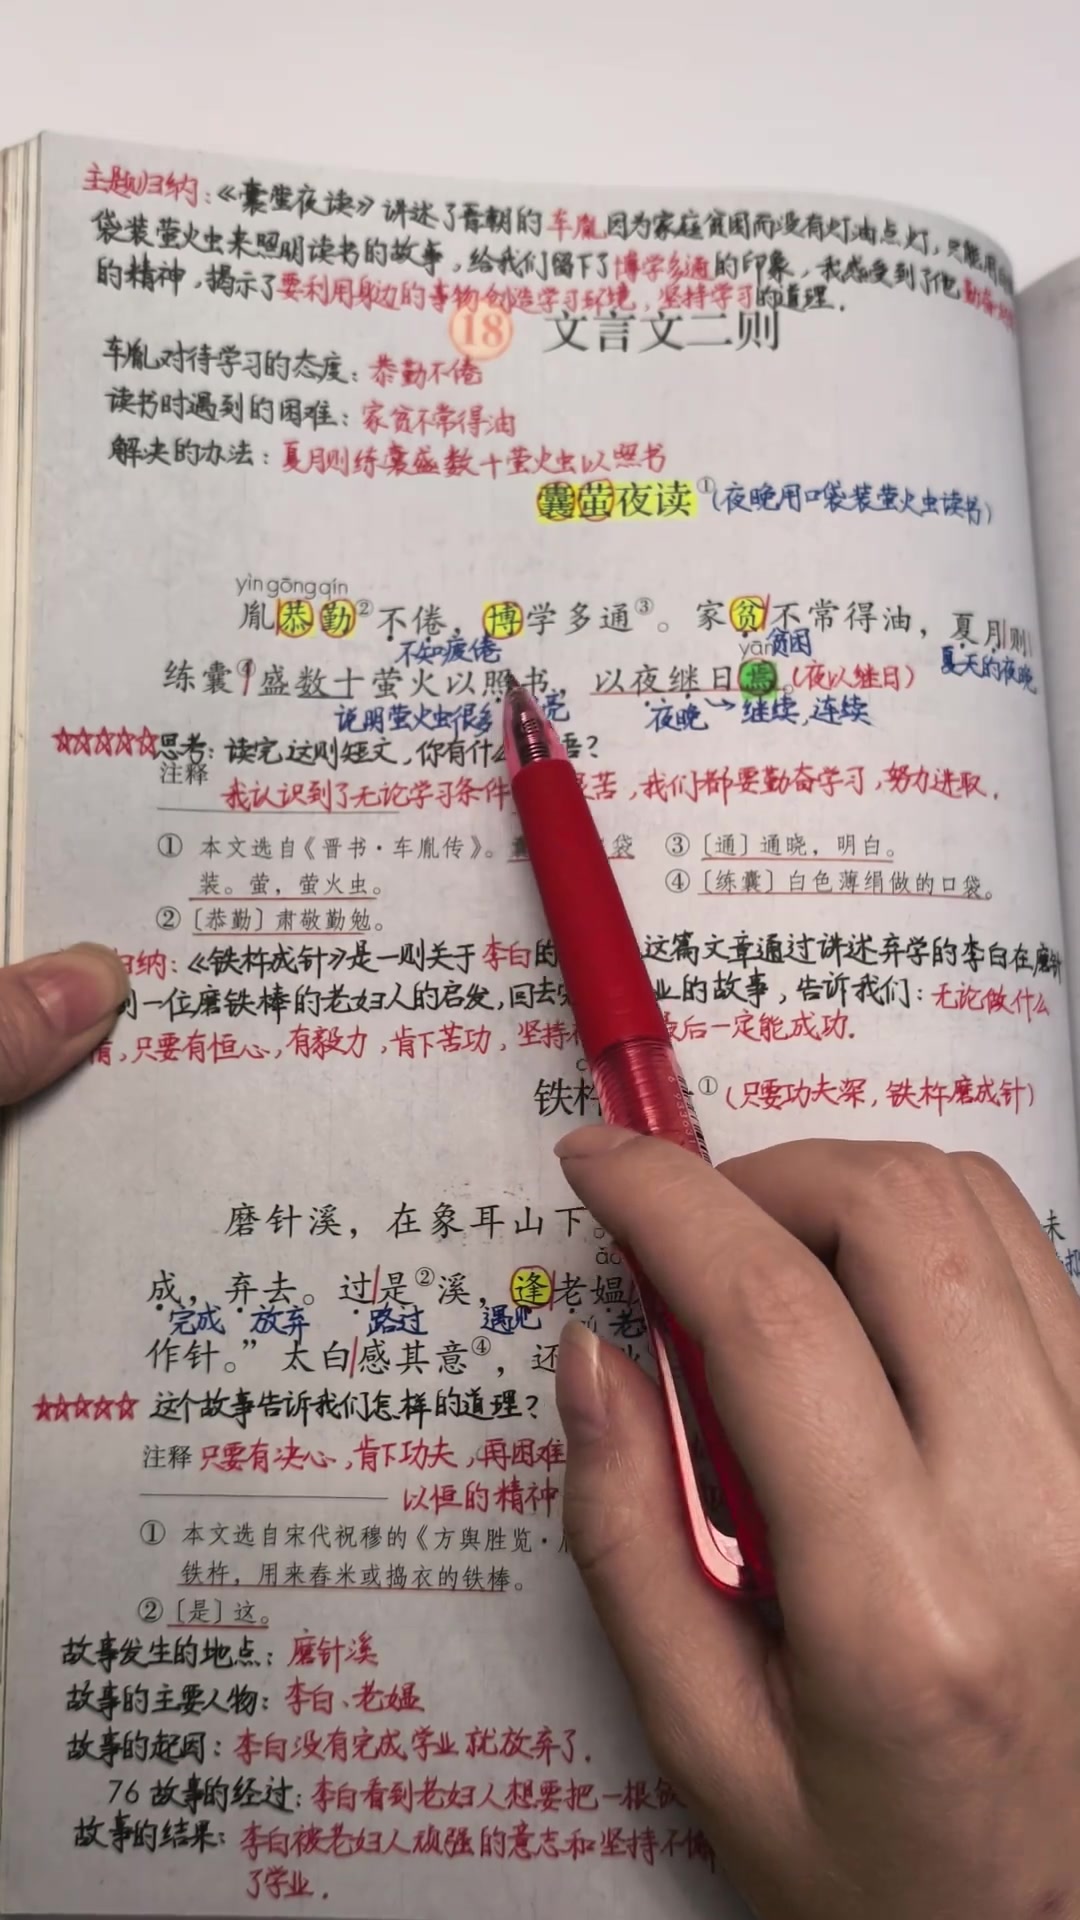 主题归纳：《囊萤夜读》讲述了晋朝的车胤因为家庭贫困而没有灯油点灯，只能用
袋装萤火虫来照明读书的故事，给我们留下了博学多通的印象，我感受到了他勤奋
的精神，揭示了要利用身边的事物创造学习环境，坚持学习的道理.
18 文言文二则
车胤对待学习的态度：恭勤不倦
读书时遇到的困难：家贫不常得油
解决的办法：夏月则练囊盛数十萤火虫以照书
囊萤夜读①(夜晚用口袋装萤火虫读书)
yìn gōng qín
胤恭勤②不倦，博学多通③。家贫不常得油，夏月则
不知疲倦 yān 贫困 夏天的夜晚
练囊④盛数十萤火以照书，以夜继日焉。(夜以继日)
说明萤火虫很多 亮 夜晚→继续,连续
☆☆☆☆☆思考：读完这则短文，你有什么 悟？
注释
我认识到了无论学习条件 艰苦，我们都要勤奋学习，努力进取.
① 本文选自《晋书·车胤传》。 袋
装。萤，萤火虫。
② 〔恭勤〕肃敬勤勉。
③ 〔通〕通晓，明白。
④ 〔练囊〕白色薄绢做的口袋。
归纳：《铁杵成针》是一则关于李白的 这篇文章通过讲述弃学的李白在磨针
到一位磨铁棒的老妇人的启发，回去 业的故事，告诉我们：无论做什么
情，只要有恒心，有毅力，肯下苦功，坚持 最后一定能成功.
铁杵 ①(只要功夫深，铁杵磨成针)
磨针溪，在象耳山下。 未
成，弃去。过是②溪，逢老媪
完成 放弃 路过 遇见 老
作针。”太白感其意④，还
☆☆☆☆☆ 这个故事告诉我们怎样的道理？
注释 只要有决心，肯下功夫，再困难
以恒的精神
① 本文选自宋代祝穆的《方舆胜览·
铁杵，用来舂米或捣衣的铁棒。
② 〔是〕这。
故事发生的地点：磨针溪
故事的主要人物：李白、老媪
故事的起因：李白没有完成学业就放弃了.
76 故事的经过：李白看到老妇人想要把一根
故事的结果：李白被老妇人顽强的意志和坚持不
了学业.